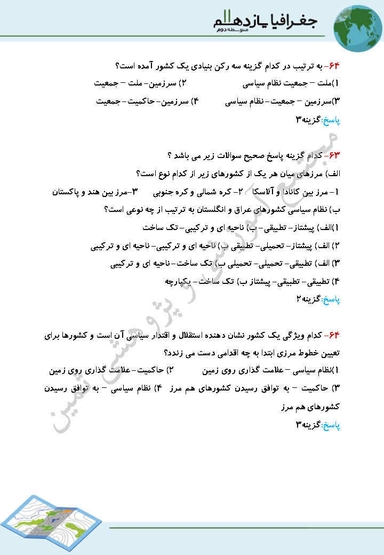 جغرافیا یازدهم
متوسطه دوم
۶۴- به ترتیب در کدام گزینه سه رکن بنیادی یک کشور آمده است؟
۱)ملت – جمعیت نظام سیاسی ۲) سرزمین- ملت – جمعیت
۳)سرزمین – جمعیت- نظام سیاسی ۴) سرزمین-حاکمیت- جمعیت
پاسخ:گزینه۳
۶۳- کدام گزینه پاسخ صحیح سوالات زیر می باشد ؟
الف) مرزهای میان هر یک از کشورهای زیر از کدام نوع است؟
۱- مرز بین کانادا و آلاسکا ۲- کره شمالی و کره جنوبی ۳-مرز بین هند و پاکستان
ب) نظام سیاسی کشورهای عراق و انگلستان به ترتیب از چه نوعی است؟
۱)الف) پیشتاز- تطبیقی- ب) ناحیه ای و ترکیبی- تک ساخت
۲) الف) پیشتاز- تحمیلی- تطبیقی ب) ناحیه ای و ترکیبی- ناحیه ای و ترکیبی
۳) الف) تطبیقی- تحمیلی- تحمیلی ب) تک ساخت- ناحیه ای و ترکیبی
۴) تطبیقی- تطبیقی- پیشتاز ب) تک ساخت- یکپارچه
پاسخ:گزینه۲
۶۴- کدام ویژگی یک کشور نشان دهنده استقلال و اقتدار سیاسی آن است و کشورها برای
تعیین خطوط مرزی ابتدا به چه اقدامی دست می زندد؟
۱)نظام سیاسی – علامت گذاری روی زمین ۲) حاکمیت- علامت گذاری روی زمین
۳) حاکمیت – به توافق رسیدن کشورهای هم مرز ۴) نظام سیاسی – به توافق رسیدن
کشورهای هم مرز
پاسخ:گزینه۳